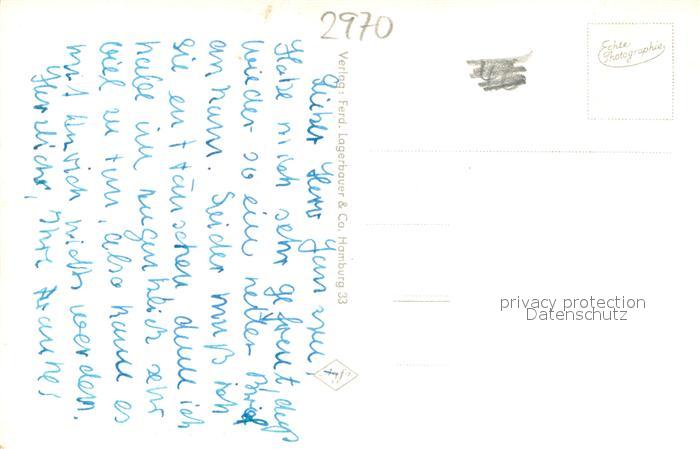 2970
Echte
Photographie
Verlag: Ferd. Lagerbauer & Co. Hamburg 33
Lieber Herr
Habe mich sehr gefreut daß
wieder so ein netter Brief
an kam. Leider muß ich
Sie enttäuschen denn ich
habe im Augenblick sehr
viel zu tun, also kann es
mit nicht werden.
Herzlichst, Ihre
privacy protection
Datenschutz